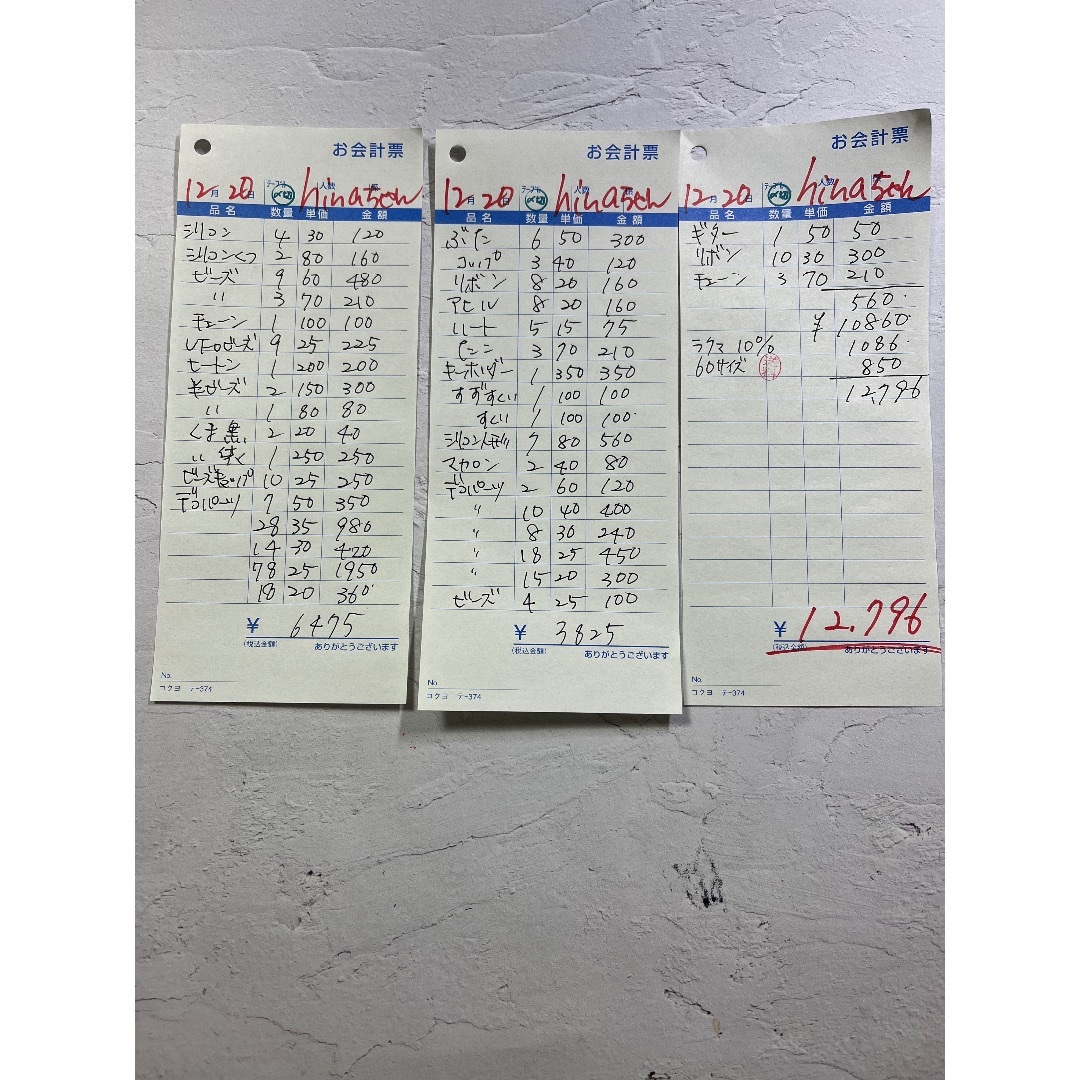 お会計票
12月20日 人数 hinaちゃん
品名 数量 単価 金額
シリコン 4 30 120
シリコンくつ 2 80 160
ビーズ 9 60 480
〃 3 70 210
チェーン 1 100 100
UFOビーズ 9 25 225
ヒートン 1 200 200
羊ビーズ 2 150 300
〃 1 80 80
くま黒 2 20 40
〃 1 250 250
10 25 250
デコパーツ 7 50 350
28 35 980
14 30 420
78 25 1950
18 20 360
¥ 6475
(税込金額) ありがとうございます
No.
コクヨ テ-374
お会計票
12月20日 人数 hinaちゃん
品名 数量 単価 金額
ぶた 6 50 300
コップ 3 40 120
リボン 8 20 160
アヒル 8 20 160
ハート 5 15 75
3 70 210
キーホルダー 1 350 350
すずすくい 1 100 100
すくい 1 100 100
シリコン 7 80 560
マカロン 2 40 80
デコパーツ 2 60 120
〃 10 40 400
〃 8 30 240
〃 18 25 450
〃 15 20 300
ビーズ 4 25 100
¥ 3825
(税込金額) ありがとうございます
No.
コクヨ テ-374
お会計票
12月20日 人数 hinaちゃん
品名 数量 単価 金額
ギター 1 50 50
リボン 10 30 300
チェーン 3 70 210
560
¥ 10860
ラクマ 10% 1086
60サイズ 850
12,796
¥ 12,796
(税込金額) ありがとうございます
No.
コクヨ テ-374